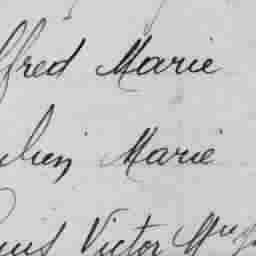 ffred Marie
ulien Marie
ouis Victor Hug